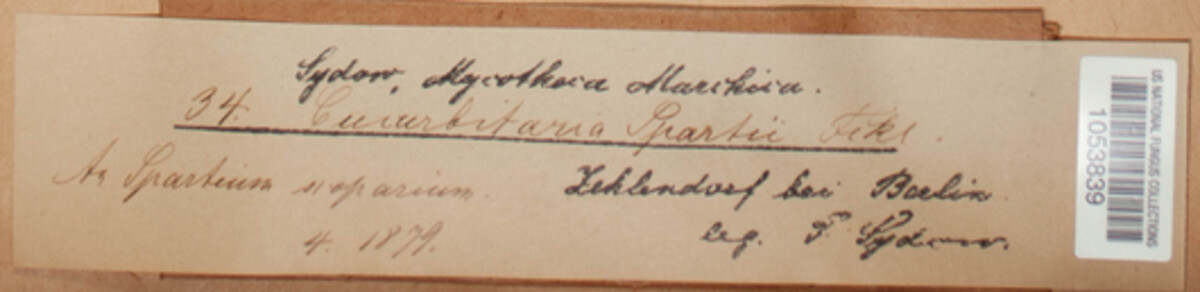 Sydow, Mycotheca Marchica.
34. Cucurbitaria Spartii Fckl.
An Spartium scoparium.
Zehlendorf bei Berlin
4. 1879.
leg. P. Sydow.
US NATIONAL FUNGUS COLLECTIONS
1053839